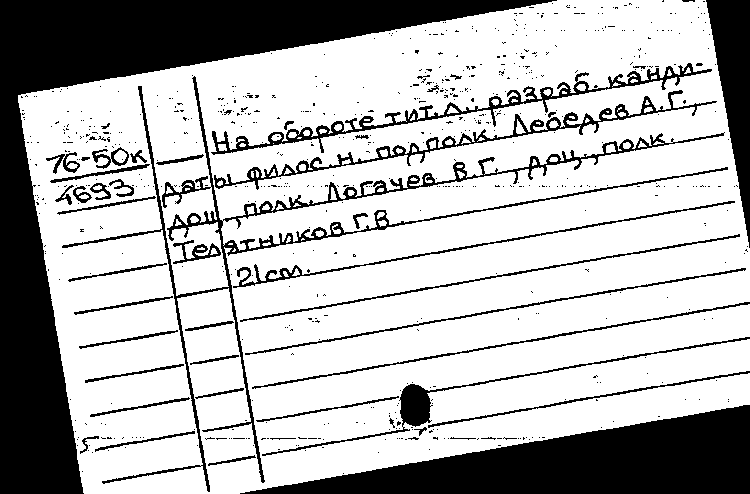 На обороте тит.л.: разраб. канди-
76-50к
даты филос.н. подполк. Лебедев А.Г.,
4693
доц., полк. Логачев В.Г., доц., полк.
Телятников Г.В.
21см.